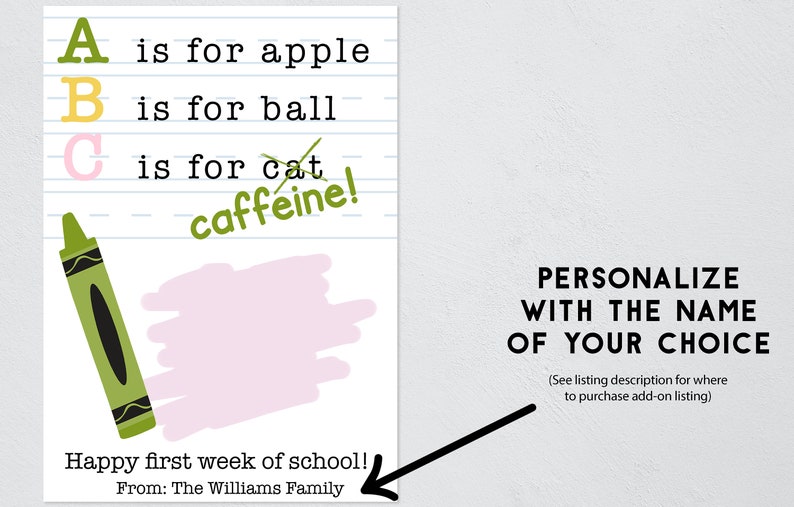 A is for apple
B is for ball
C is for cat
caffeine!
Happy first week of school!
From: The Williams Family
PERSONALIZE
WITH THE NAME
OF YOUR CHOICE
(See listing description for where
to purchase add-on listing)